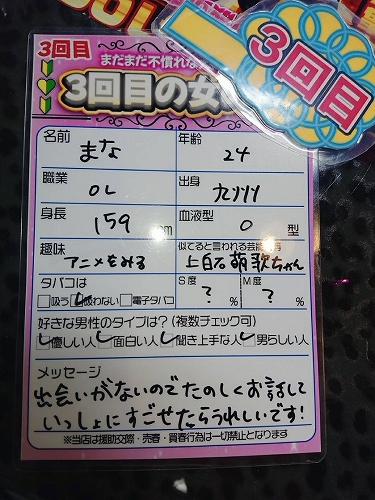 3回目
まだまだ不慣れな
3回目の女
3回目
名前 まな
年齢 24
職業 OL
出身 九州
身長 159 cm
血液型 O 型
趣味 アニメをみる
似てると言われる芸能人 上白石萌歌ちゃん
タバコは
吸う 吸わない 電子タバコ
S度 ? %
M度 ? %
好きな男性のタイプは?(複数チェック可)
優しい人 面白い人 聞き上手な人 男らしい人
メッセージ
出会いがないのでたのしくお話して
いっしょにすごせたらうれしいです!
※当店は援助交際・売春・買春行為は一切禁止となります